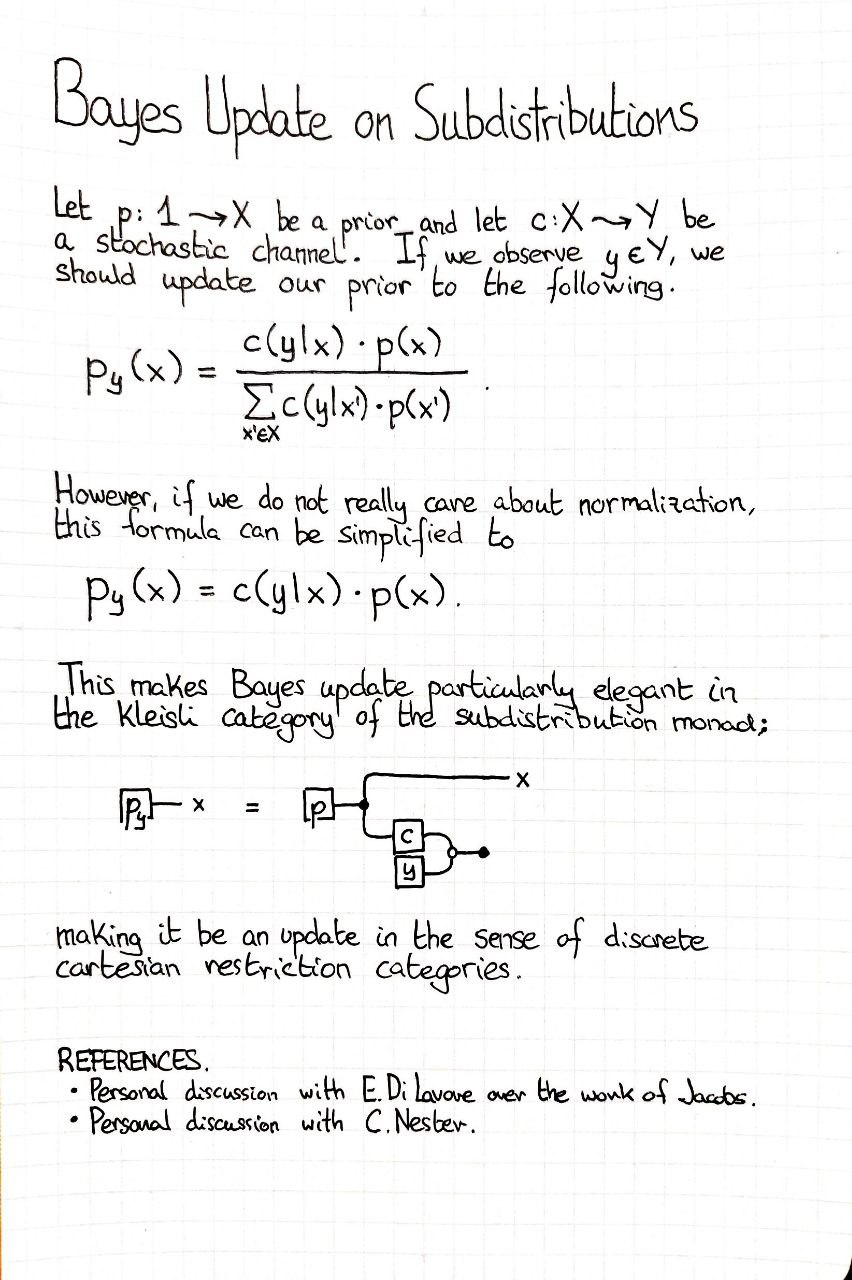 Bayes Update on Subdistributions
Let p: 1 ⇝ X be a prior and let c: X ⇝ Y be
a stochastic channel. If we observe y ∈ Y, we
should update our prior to the following.
p_y(x) = c(y|x) · p(x) / ∑_{x'∈X} c(y|x') · p(x') .
However, if we do not really care about normalization,
this formula can be simplified to
p_y(x) = c(y|x) · p(x).
This makes Bayes update particularly elegant in
the Kleisli category of the subdistribution monad;
p_y x = p x
c
y
making it be an update in the sense of discrete
cartesian restriction categories.
REFERENCES.
• Personal discussion with E. Di Lavore over the work of Jacobs.
• Personal discussion with C. Nester.